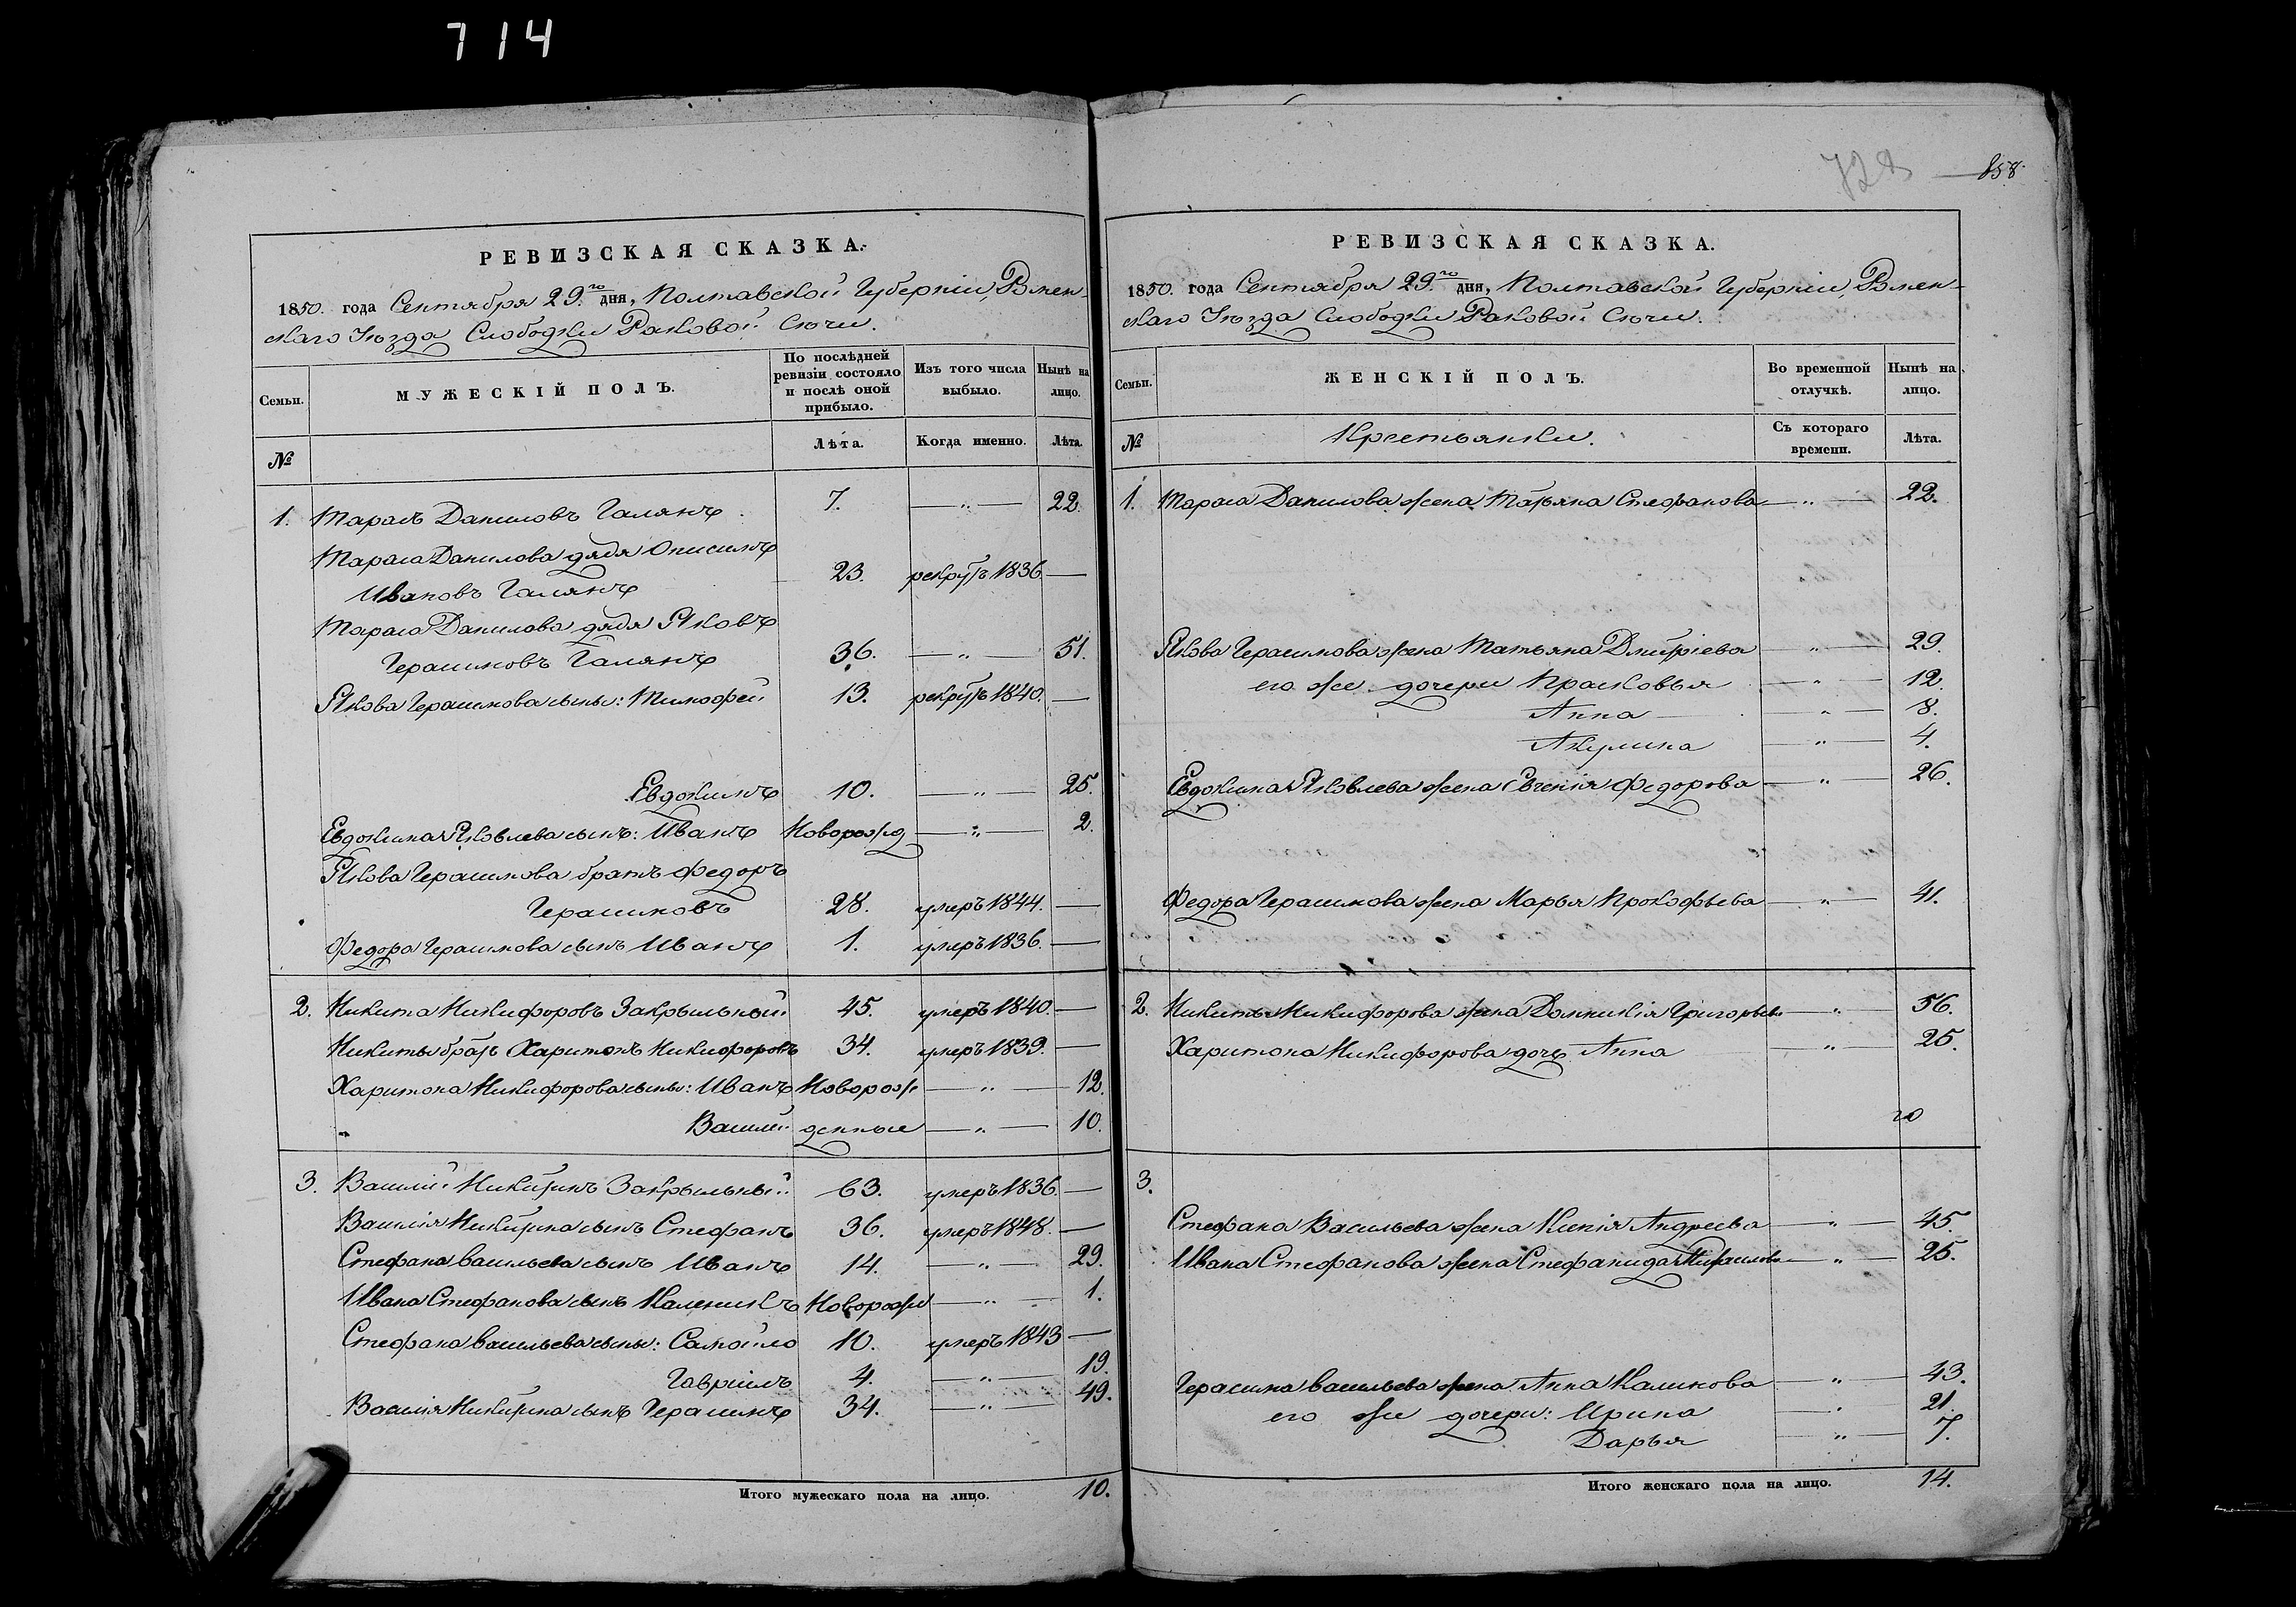 714
РЕВИЗСКАЯ СКАЗКА.
1850. года Сентября 29.го дня, Полтавской Губерніи, Ромен-
скаго Уѣзда Слободки Раковой Сѣчи.
Семьи.
МУЖЕСКІЙ ПОЛЪ.
По послѣдней ревизіи состояло и послѣ оной прибыло.
Изъ того числа выбыло.
Нынѣ на лицо.
№
Лѣта.
Когда именно.
Лѣта.
1. Тарасъ Даниловъ Галянъ 7. — „ — 22.
Тараса Данилова дядя Онисимъ
Ивановъ Галянъ 23. рекрутъ 1836. —
Тараса Данилова дядя Яковъ
Герасимовъ Галянъ 36. — „ — 51.
Якова Герасимова сыны: Тимофей 13. рекрутъ 1840. —
Евдокимъ 10. — „ — 25.
Евдокима Яковлева сынъ: Иванъ Поворожд — „ — 2.
Якова Герасимова братъ Федоръ
Герасимовъ 28. умеръ 1844. —
Федора Герасимова сынъ Иванъ 1. умеръ 1836. —
2. Никита Никифоровъ Закрыльной 45. умеръ 1840. —
Никиты братъ Харитонъ Никифоровъ 34. умеръ 1839. —
Харитона Никифорова сыны: Иванъ Новорож — „ — 12.
Василій денные — „ — 10.
3. Василій Никитинъ Закрыльный 63. умеръ 1836. —
Василія Никитина сынъ Стефанъ 36. умеръ 1848. —
Стефана Васильева сынъ Иванъ 14. — „ — 29.
Ивана Стефанова сынъ Каленикъ Новорожд — „ — 1.
Стефана Васильева сыны: Самойло 10. умеръ 1843 —
Гавріилъ 4. — „ — 19.
Василія Никитина сынъ Герасимъ 34. — „ — 49.
Итого мужескаго пола на лицо. 10.
728 — 858
РЕВИЗСКАЯ СКАЗКА.
1850. года Сентября 29.го дня, Полтавской Губерніи, Ромен-
скаго Уѣзда Слободки Раковой Сѣчи.
Семьи.
ЖЕНСКІЙ ПОЛЪ.
Во временной отлучкѣ.
Нынѣ на лицо.
№
Крестьянки.
Съ котораго времени.
Лѣта.
1. Тараса Данилова жена Татьяна Стефанова — „ — 22.
Якова Герасимова жена Татьяна Дмитріева — „ — 29.
его же дочери Прасковья — „ — 12.
Анна — „ — 8.
Акулина — „ — 4.
Евдокима Яковлева жена Евгенія Федорова — „ — 26.
Федора Герасимова жена Марья Прокофьева — „ — 41.
2. Никиты Никифорова жена Домникія Григорьева — „ — 56.
Харитона Никифорова дочь Анна — „ — 25.
3.
Стефана Васильева жена Ксенія Андреева — „ — 45.
Ивана Стефанова жена Стефанида — „ — 25.
Герасима Васильева жена Анна Калинова — „ — 43.
его же дочери: Ирина — „ — 21.
Дарья — „ — 7.
Итого женскаго пола на лицо. 14.